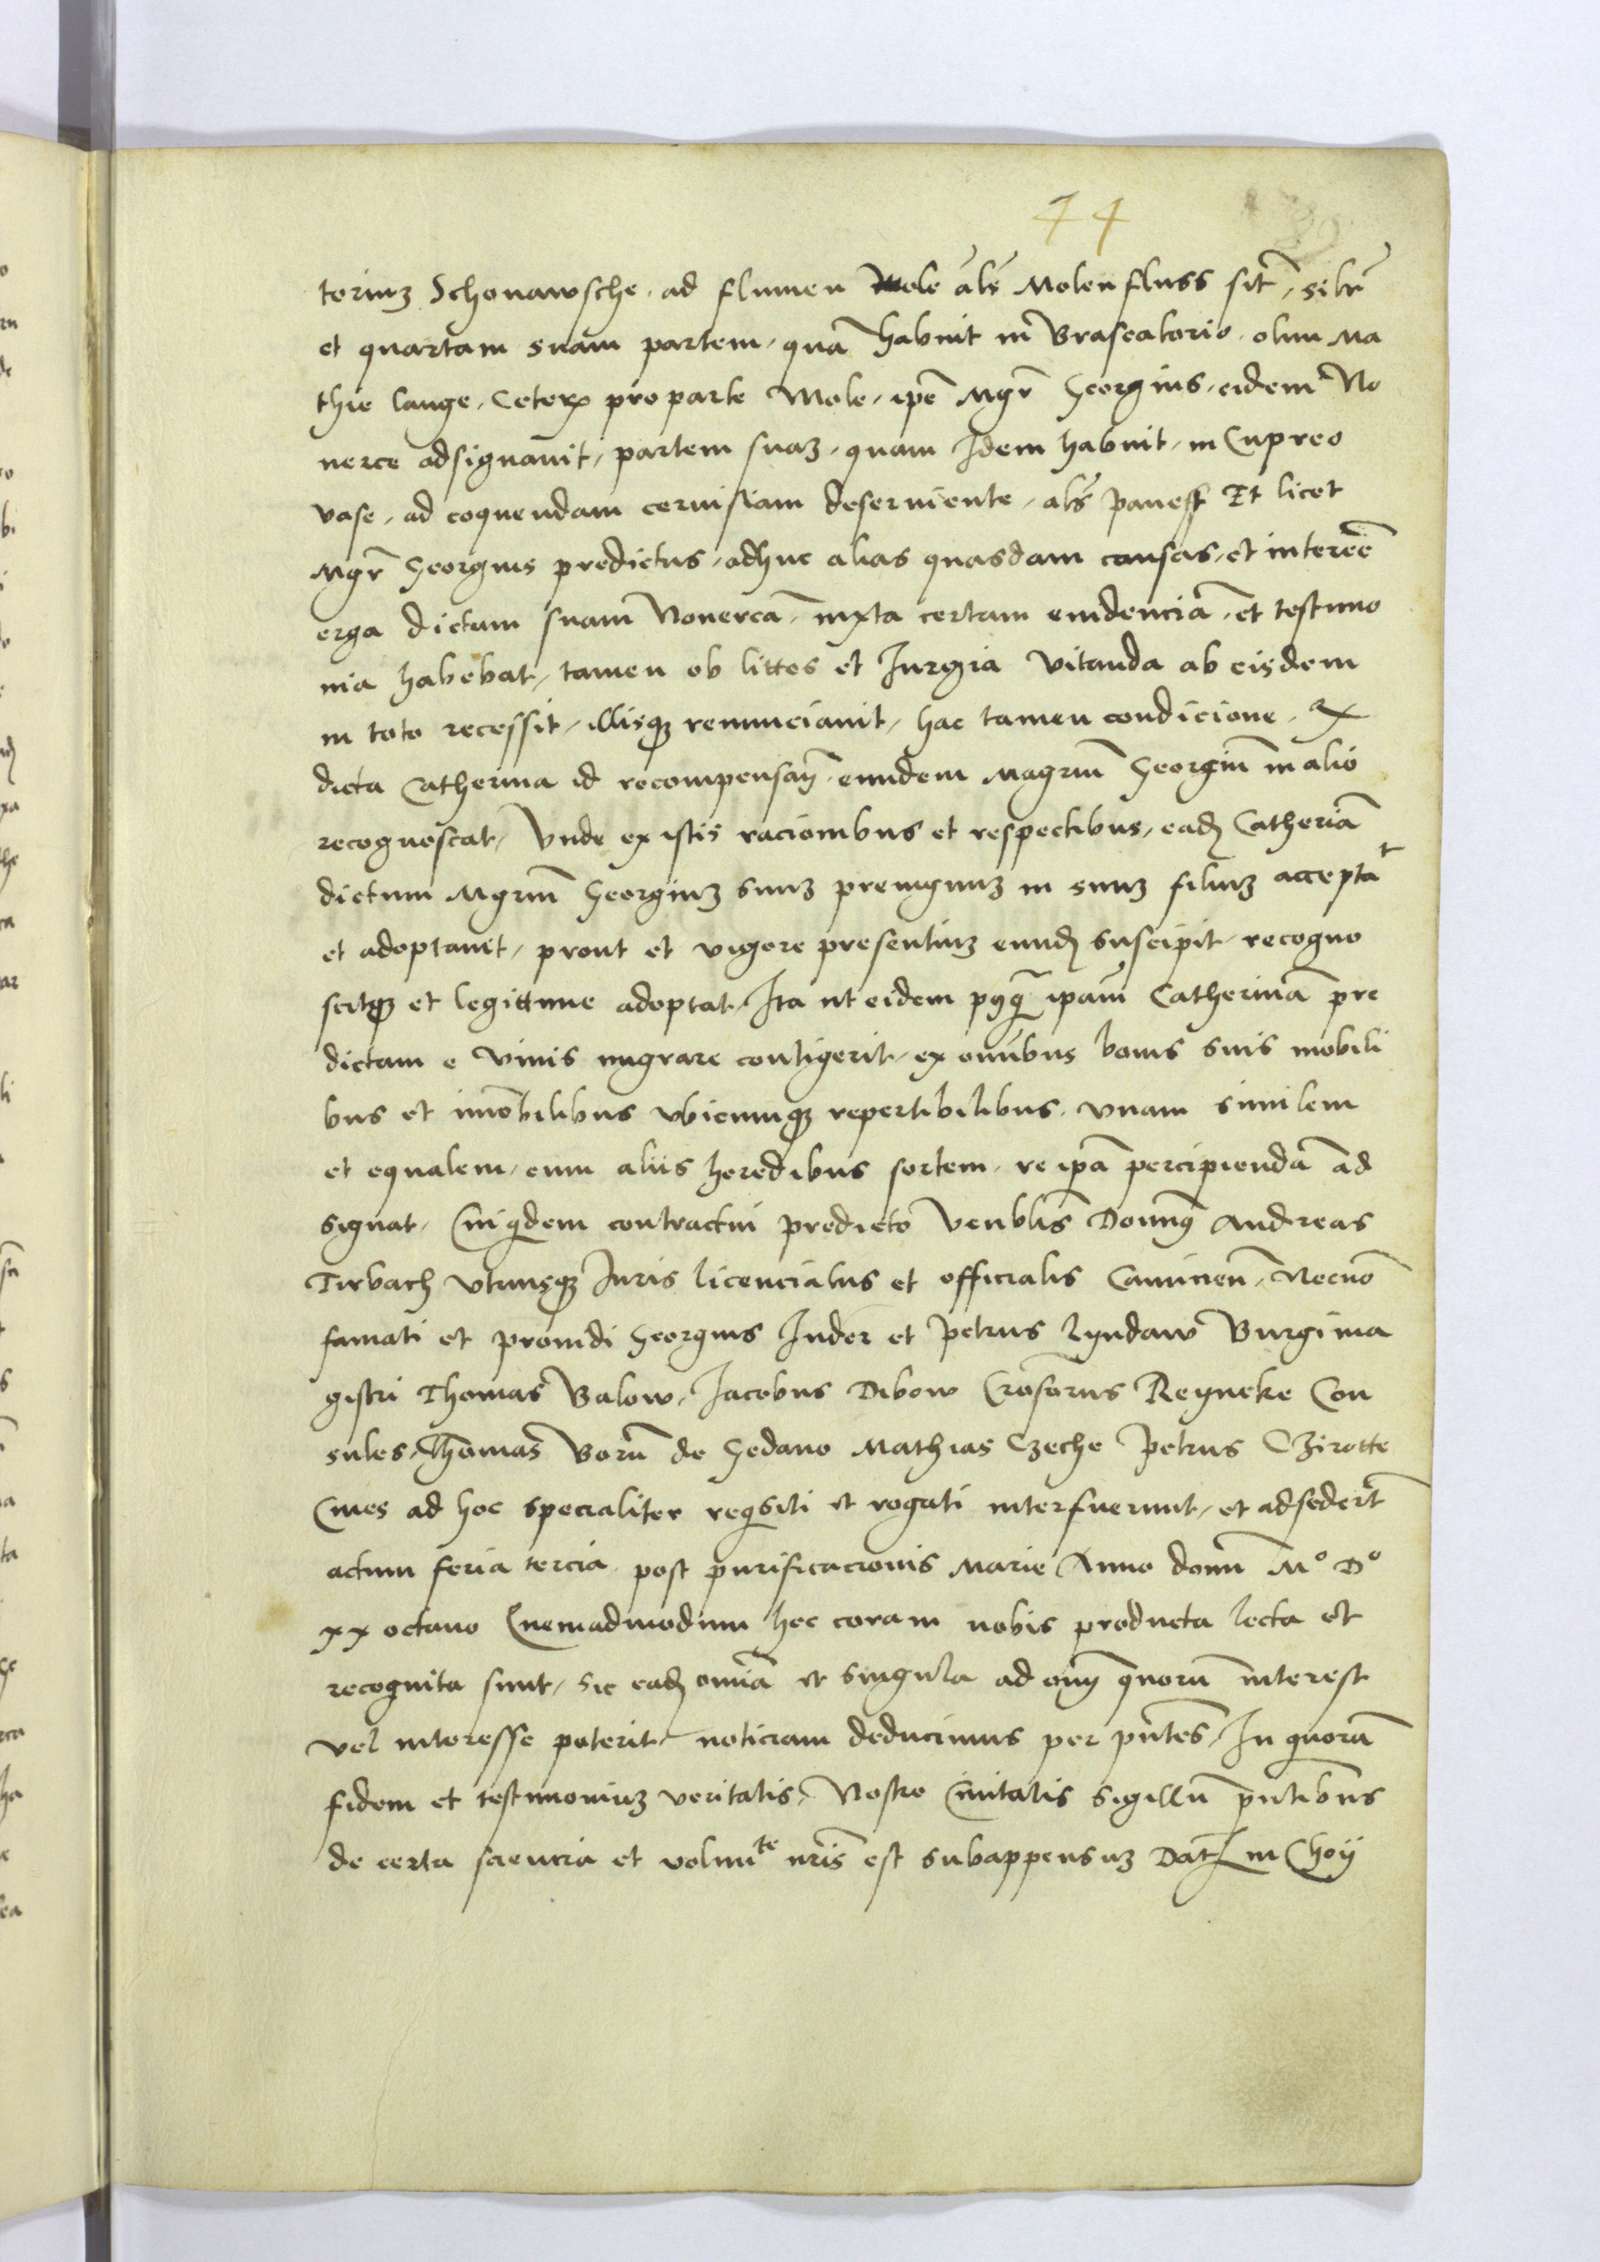 44
toriuz Schonawsche, ad flumen Mole als̄ Molenfluss sit̄, silr̄
et quartam suam partem, quā habuit in Braseatorio, olim Ma
thie lange, Ceterꝝ pro parte Mole, ip̄e Mgr̄ Georgius, eidem No
nerce adsignauit, partem suaz, quam Idem habuit, in Cupreo
vase, ad coquendam ceruisiam deseruiente, als̄ Et licet
Mgr̄ Georgius predictus, adhuc alias quasdam causas, et interēē
erga dictum suam Nonercā, iuxta certam euidenciā, et testimo
nia habebat, tamen ob littes et Jurgia vitanda ab eisdem
in toto recessit, illisqz renunciauit, hac tamen condicione,
dicta Catherina id recompensan̄ eundem Magrum̄ Georgiū in alio
recognoscat, Vnde ex istis racionibus et respectibus, eadz Catheriā
dictum Mgrum̄ Georgiuz suuz preuignuz in suuz filiuz acceptat
et adoptauit, prout et vigore presentiuz eundz suscipit, recogno
scitqz et legittime adoptat, Ita ut eidem ip̄am Catherinā pre
dictam e viuis migrare contigerit, ex omībus bonis suis mobili
bus et imōbilibus vbicumqz repertibilibus, vnam similem
et equalem, cum aliis heredibus sortem, re ip̄a percipiendā ad
signat, Cuiqdem contractui predicto Venblis̄ Domn9 Andreas
Tirbach vtriusqz Juris licenciatus et officialis Caminen̄, Necnō
famati et prouidi Georgius Inder et Petrus Lyndaw Burgima
gistri Thomas Balow, Jacobus Dibow Reyneke Con
sules, Thomas Borū de Gedano Mathias Czeche Petrus Czirotte
Ciues ad hoc specialiter reqsiti et rogati interfuerunt, et adsedert̄
actum feria tercia post purificacionis Marie Anno domī Mº Dº
xx octauo Quemadmodum hec coram nobis producta lecta et
recognita sunt, sic eadz omīa et singula ad omn̄ quorū interest
vel interesse poterit, noticiam deducimus per pn̄tes, In quorū
fidem et testimoniuz veritatis, Nostre Ciuitatis sigillū pn̄tibus
de certa sciencia et volunte nr̄is est subappensuz Dat̄ in